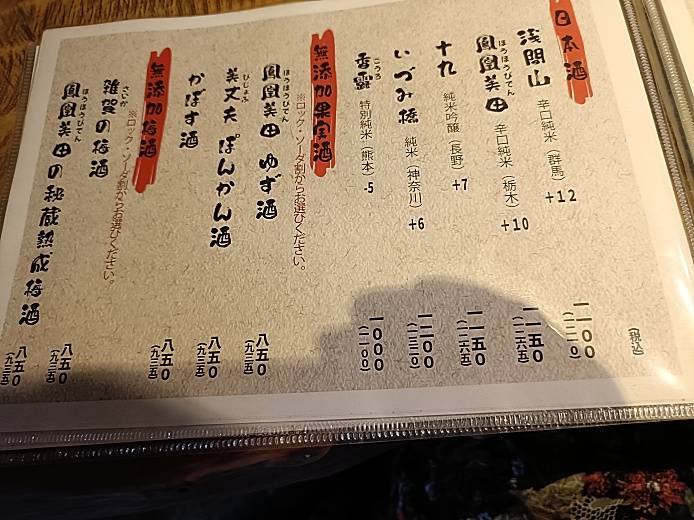 日本酒
(税込)
浅間山 辛口純米(群馬) +12 一一〇〇(一二一〇)
ほうおうびでん
鳳凰美田 辛口純米(栃木) +10 一一五〇(一二六五)
十九 純米吟醸(長野) +7 一一五〇(一二六五)
いづみ橋 純米(神奈川) +6 一一〇〇(一二一〇)
こうろ
香露 特別純米(熊本) -5 一〇〇〇(一一〇〇)
無添加果実酒
※ロック・ソーダ割からお選びください。
ほうほうびでん
鳳凰美田 ゆず酒 八五〇(九三五)
びじょふ
美丈夫 ぽんかん酒 八五〇(九三五)
かぼす酒 八五〇(九三五)
無添加梅酒
※ロック・ソーダ割からお選びください。
さいか
雑賀の梅酒 八五〇(九三五)
ほうほうびでん
鳳凰美田の秘蔵熟成梅酒 八五〇(九三五)